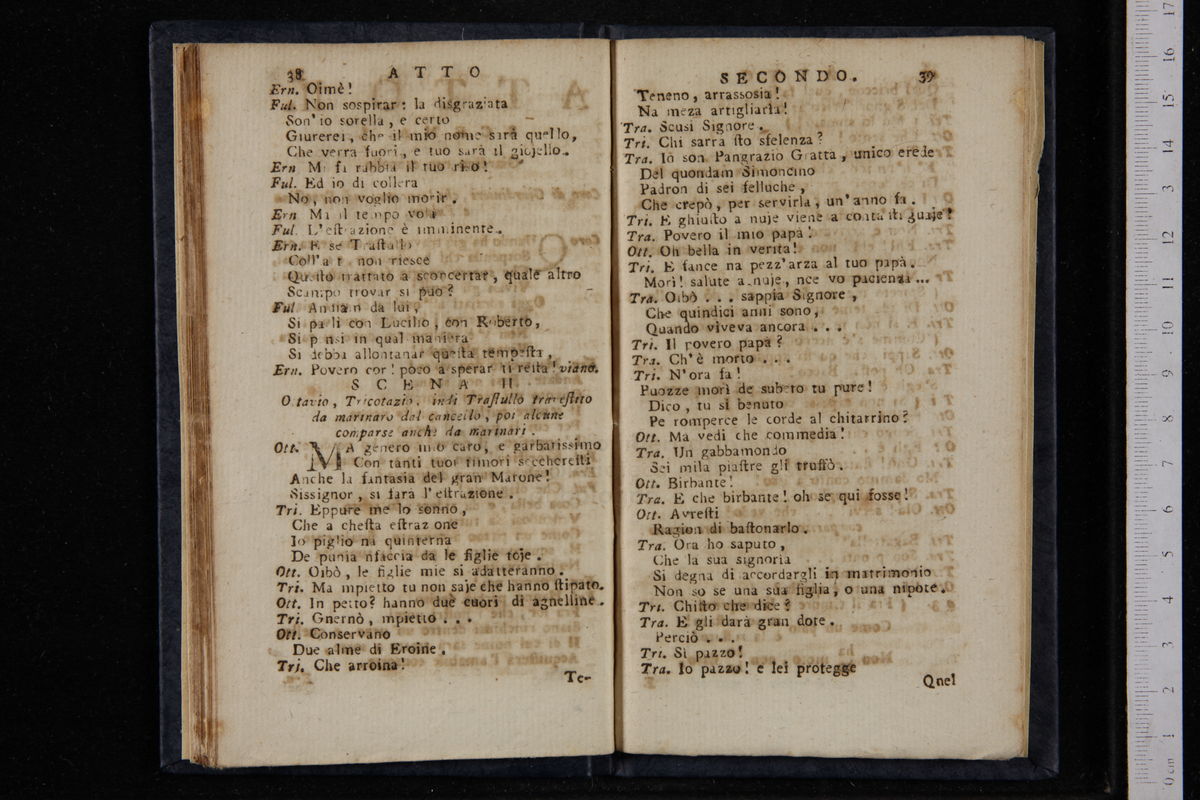 38 ATTO
Ern. Oimè!
Ful. Non sospirar: la disgraziata
Son' io sorella, e certo
Giurerei, che il mio nome sarà quello,
Che verra fuori, e tuo sarà il giojello.
Ern Mi fa rabbia il tuo riso!
Ful. Ed io di collera
No, non voglio morir.
Ern Ma il tempo vola
Ful. L'eſtrazione è imminente.
Ern. E se Traſtullo
Coll'a t non riesce
Queſto trattato a sconcertar, quale altro
Scampo trovar si può?
Ful Andiam da lui,
Si parli con Lucilio, con Roberto,
Si pensi in qual maniera
Si debba allontanar queſta tempeſta,
Ern. Povero cor! poco a sperar ti reſta! viano.
SCENA II.
Ottavio, Tricotazio, indi Traſtullo traveſtito
da marinaro dal cancello, poi alcune
comparse anche da marinari.
Ott. MA genero mio caro, e garbatissimo
Con tanti tuoi timori secchereſti
Anche la fantasia del gran Marone!
Sissignor, si fara l'eſtrazione.
Tri. Eppure me lo sonno,
Che a cheſta eſtrazione
Io piglio na quinterna
De punia nfaccia da le figlie toje.
Ott. Oibò, le figlie mie si adatteranno.
Tri. Ma mpietto tu non saje che hanno ſtipato.
Ott. In petto? hanno due cuori di agnelline.
Tri. Gnernò, mpietto . . .
Ott. Conservano
Due alme di Eroine.
Tri. Che arroina!
Te-
SECONDO. 39
Teneno, arrassosia!
Na meza artigliaria!
Tra. Scusi Signore.
Tri. Chi sarra ſto sfelenza?
Tra. Io son Pangrazio Gratta, unico erede
Del quondam Simoncino
Padron di sei felluche,
Che crepò, per servirla, un'anno fa.
Tri. E ghiuſto a nuje viene a conta ſti guaje!
Tra. Povero il mio papà!
Ott. Oh bella in verita!
Tri. E fance na pezz'arza al tuo papà.
Morì! salute a nuje, nce vo pacienza...
Tra. Oibò . . . sappia Signore,
Che quindici anni sono,
Quando viveva ancora . . .
Tri. Il povero papà?
Tra. Ch'è morto . . .
Tri. N'ora fa!
Puozze morì de subeto tu pure!
Dico, tu si benuto
Pe romperce le corde al chitarrino?
Ott. Ma vedi che commedia!
Tra. Un gabbamondo
Sei mila piaſtre gli truffò.
Ott. Birbante!
Tra. E che birbante! oh se qui fosse!
Ott. Avreſti
Ragion di baſtonarlo.
Tra. Ora ho saputo,
Che la sua signoria
Si degna di accordargli in matrimonio
Non so se una sua figlia, o una nipote.
Tri. Chiſto che dice?
Tra. E gli darà gran dote.
Perciò . . .
Tri. Si pazzo!
Tra. Io pazzo! e lei protegge
Qnel